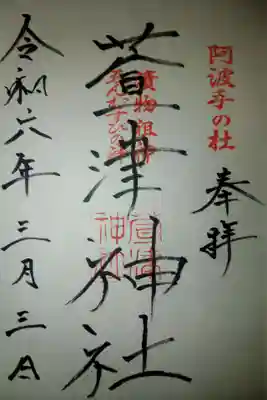 阿波手の杜
奉拝
漬物祖神
萱津神社
令和六年三月三日